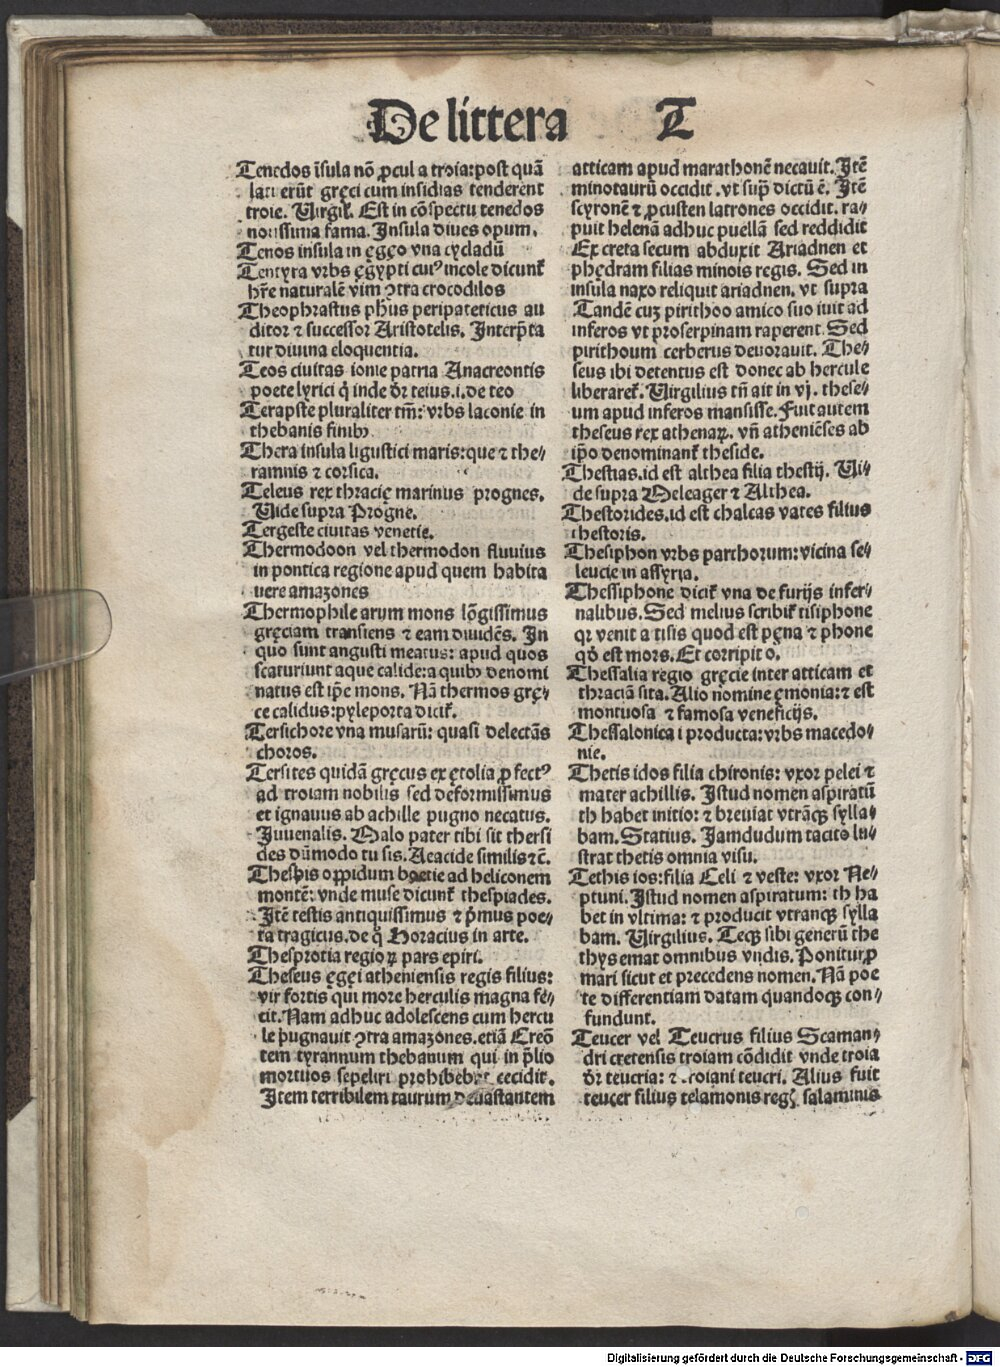 De littera T
Tenedos īsula nō ꝓcul a troia:post quā
lati erūt gręci cum insidias tenderent
troie. Uirgil. Est in cōspectu tenedos
notissima fama. Insula diues opum.
Tenos insula in ęgęo vna cycladū
Tentyra vrbs ęgypti cuiꝰ incole dicunt̄
hr̄e naturalē vim ↄtra crocodilos
Theophrastus ph̄us peripateticus au
ditor ⁊ successor Aristotelis. Interp̄ta
tur diuina eloquentia.
Teos ciuitas ionie patria Anacreontis
poete lyrici q̇ inde dr̄ teius.i.de teo
Terapste pluraliter tm̄: vrbs laconie in
thebanis finibꝫ
Thera insula ligustici maris:que ⁊ the⸗
ramnis ⁊ corsica.
Teleus rex thracię marinus prognes.
Uide supra Progne.
Tergeste ciuitas venetie.
Thermodoon vel thermodon fluuius
in pontica regione apud quem habita
uere amazones
Thermophile arum mons lōgissimus
gręciam transiens ⁊ eam diuidēs. In
quo sunt angusti meatus: apud quos
scaturiunt aque calide:a quibꝫ denomi
natus est ip̄e mons. Nā thermos grę⸗
ce calidus:pyleporta dicit̄.
Tersichore vna musarū: quasi delectās
choros.
Tersites quidā gręcus ex ętolia ꝓfectꝰ
ad troiam nobilis sed deformissimus
et ignauus ab achille pugno necatus.
Iuuenalis. Malo pater tibi sit thersi
des dūmodo tu sis. Aeacide similis ⁊c̄.
Thespis oppidum boetie ad heliconem
montē: vnde muse dicunt̄ thespiades.
Itē testis antiquissimus ⁊ p̄mus poe⸗
ta tragicus.de q̊ Horacius in arte.
Thesprotia regio ⁊ pars epiri.
Theseus ęgęi atheniensis regis filius:
vir fortis qui more herculis magna fe⸗
cit. Nam adhuc adolescens cum hercu
le pugnauit ↄtra amazones. etiā Creō
tem tyrannum thebanum qui in p̄lio
mortuos sepeliri prohibebat cecidit.
Item terribilem taurum deuastantem
atticam apud marathonē necauit. Itē
minotaurū occidit .vt sup̄ dictū ē. Itē
scyronē ⁊ ꝓcusten latrones occidit. ra⸗
puit helenā adhuc puellā sed reddidit
Ex creta secum abduxit Ariadnen et
phędram filias minois regis. Sed in
insula naxo reliquit ariadnen. vt supra
Tandē cuꝫ pirithoo amico suo iuit ad
inferos vt proserpinam raperent. Sed
pirithoum cerberus deuorauit. The⸗
seus ibi detentus est donec ab hercule
liberaret̄. Uirgilius tn̄ ait in vj. these⸗
um apud inferos mansisse. Fuit autem
theseus rex athenaꝝ. vn̄ atheniēses ab
ip̄o denominant̄ theside.
Thestias.id est althea filia thestij. Ui⸗
de supra Meleager ⁊ Althea.
Thestorides.id est chalcas vates filius
thestoris.
Thesiphon vrbs parthorum: vicina se⸗
leucie in assyria.
Thessiphone dicit̄ vna de furijs infer⸗
nalibus. Sed melius scribit̄ tisiphone
qꝛ venit a tisis quod est pęna ⁊ phone
qd̊ est mors. Et corripit o.
Thessalia regio gręcie inter atticam et
thraciā sita. Alio nomine ęmonia: ⁊ est
montuosa ⁊ famosa veneficijs.
Thessalonica i producta: vrbs macedo⸗
nie.
Thetis idos filia chironis: vxor pelei ⁊
mater achillis. Istud nomen aspiratū
th habet initio: ⁊ breuiat vtrāqꝫ sylla⸗
bam. Statius. Jamdudum tacito lu⸗
strat thetis omnia visu.
Tethis ios:filia Celi ⁊ veste: vxor Ne⸗
ptuni. Istud nomen aspiratum: th ha
bet in vltima: ⁊ producit vtranqꝫ sylla
bam. Uirgilius. Teqꝫ sibi generū the
thys emat omnibus vndis. Ponitur ꝓ
mari sicut et precedens nomen. Nā poe
te differentiam datam quandoqꝫ con⸗
fundunt.
Teucer vel Teucrus filius Scaman⸗
dri cretensis troiam cōdidit vnde troia
dr̄ teucria: ⁊ troiani teucri. Alius fuit
teucer filius telamonis regꝭ salaminis
Digitalisierung gefördert durch die Deutsche Forschungsgemeinschaft - DFG